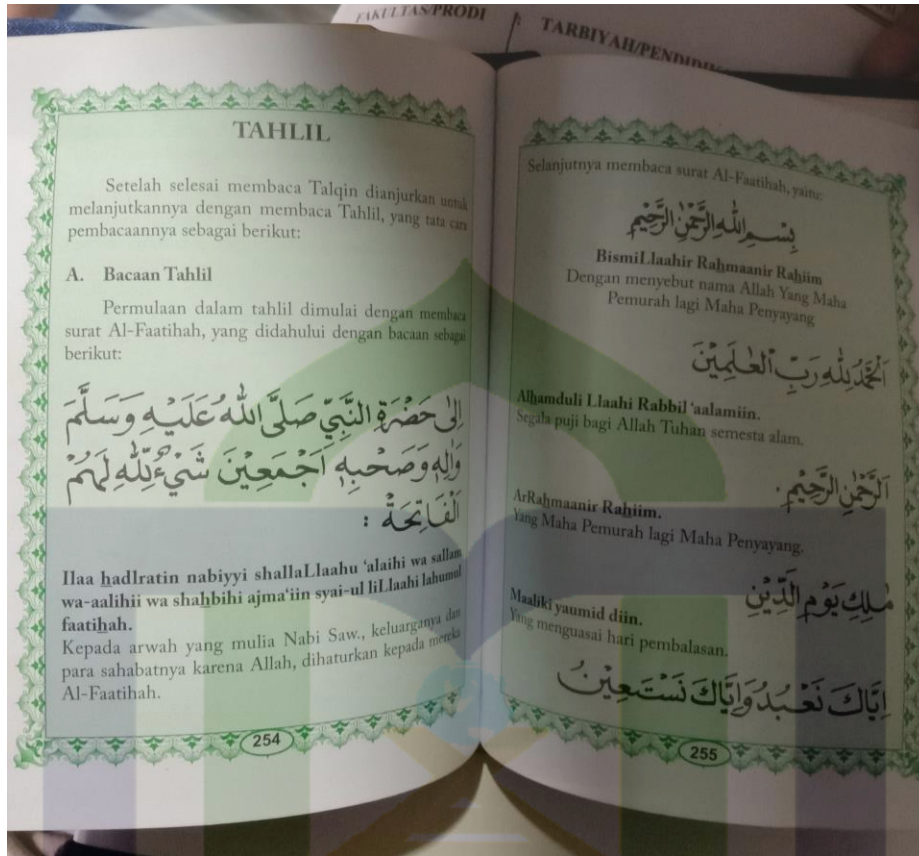 FAKULTAS/PRODI :
TARBIYAH/PENDIDIK
TAHLIL
Setelah selesai membaca Talqin dianjurkan untuk
melanjutkannya dengan membaca Tahlil, yang tata cara
pembacaannya sebagai berikut:
A. Bacaan Tahlil
Permulaan dalam tahlil dimulai dengan membaca
surat Al-Faatihah, yang didahului dengan bacaan sebagai
berikut:
اِلٰى حَضْرَةِ النَّبِيِّ صَلَّى اللّٰهُ عَلَيْهِ وَسَلَّمَ
وَاٰلِهٖ وَصَحْبِهٖ اَجْمَعِيْنَ شَيْءٌ لِلّٰهِ لَهُمُ
الْفَاتِحَةُ :
Ilaa hadlratin nabiyyi shallaLlaahu ‘alaihi wa sallam
wa-aalihii wa shahbihi ajma‘iin syai-ul liLlaahi lahumul
faatihah.
Kepada arwah yang mulia Nabi Saw., keluarganya dan
para sahabatnya karena Allah, dihaturkan kepada mereka
Al-Faatihah.
254
Selanjutnya membaca surat Al-Faatihah, yaitu:
بِسْمِ اللّٰهِ الرَّحْمٰنِ الرَّحِيْمِ
BismiLlaahir Rahmaanir Rahiim
Dengan menyebut nama Allah Yang Maha
Pemurah lagi Maha Penyayang
اَلْحَمْدُ لِلّٰهِ رَبِّ الْعٰلَمِيْنَ
Alhamduli Llaahi Rabbil ‘aalamiin.
Segala puji bagi Allah Tuhan semesta alam.
اَلرَّحْمٰنِ الرَّحِيْمِ.
ArRahmaanir Rahiim.
Yang Maha Pemurah lagi Maha Penyayang.
مٰلِكِ يَوْمِ الدِّيْنِ
Maaliki yaumid diin.
Yang menguasai hari pembalasan.
اِيَّاكَ نَعْبُدُ وَاِيَّاكَ نَسْتَعِيْنُ
255